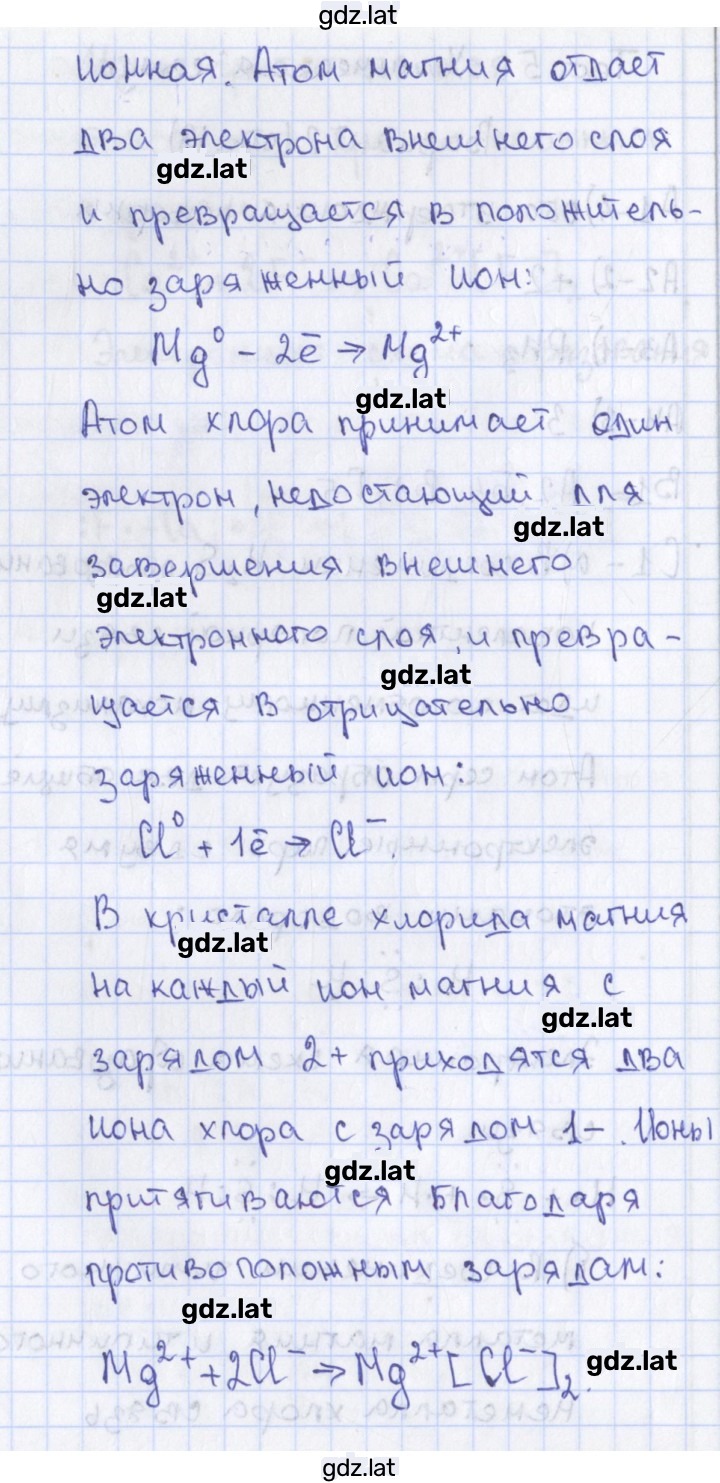 gdz.lat
ионная. Атом магния отдает
два электрона внешнего слоя
gdz.lat
и превращается в положитель-
но заряженный ион:
Mg⁰ - 2ē → Mg²⁺
gdz.lat
Атом хлора принимает один
электрон, недостающий для
gdz.lat
завершения внешнего
gdz.lat
электронного слоя, и превра-
gdz.lat
щается в отрицательно
заряженный ион:
Cl⁰ + 1ē → Cl⁻.
В кристалле хлорида магния
gdz.lat
на каждый ион магния с
gdz.lat
зарядом 2+ приходятся два
иона хлора с зарядом 1-. Ионы
gdz.lat
притягиваются благодаря
противоположным зарядам:
gdz.lat
Mg²⁺ + 2Cl⁻ → Mg²⁺[Cl⁻]₂.
gdz.lat
gdz.lat